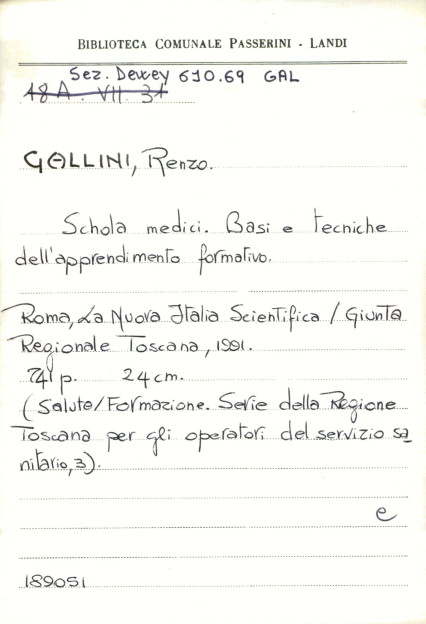 BIBLIOTECA COMUNALE PASSERINI - LANDI
Sez. Dewey 610.69 GAL
48 A. VII. 31
GALLINI, Renzo.
Schola medici. Basi e tecniche
dell'apprendimento formativo.
Roma, La Nuova Italia Scientifica / Giunta
Regionale Toscana, 1991.
741 p. 24 cm.
(Salute/Formazione. Serie della Regione
Toscana per gli operatori del servizio sa
nitario, 3).
e
189051